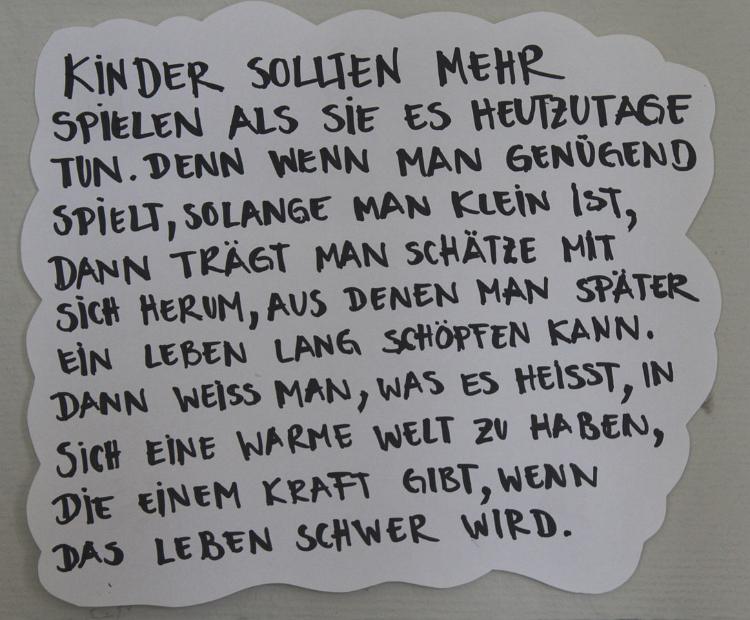 KINDER SOLLTEN MEHR
SPIELEN ALS SIE ES HEUTZUTAGE
TUN. DENN WENN MAN GENÜGEND
SPIELT, SOLANGE MAN KLEIN IST,
DANN TRÄGT MAN SCHÄTZE MIT
SICH HERUM, AUS DENEN MAN SPÄTER
EIN LEBEN LANG SCHÖPFEN KANN.
DANN WEISS MAN, WAS ES HEISST, IN
SICH EINE WARME WELT ZU HABEN,
DIE EINEM KRAFT GIBT, WENN
DAS LEBEN SCHWER WIRD.